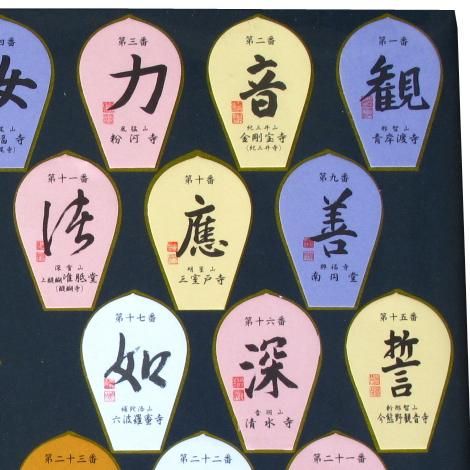 第一番
観
那智山
青岸渡寺
第二番
音
紀三井山
金剛宝寺
(紀三井寺)
第三番
力
風猛山
粉河寺
四番
女
福寺
尾寺)
第九番
善
興福寺
南円堂
第十番
應
明星山
三室戸寺
第十一番
諸
深雪山
上醍醐准胝堂
(醍醐寺)
第十五番
誓
新那智山
今熊野観音寺
第十六番
深
音羽山
清水寺
第十七番
如
補陀洛山
六波羅蜜寺
第二十一番
第二十二番
第二十三番